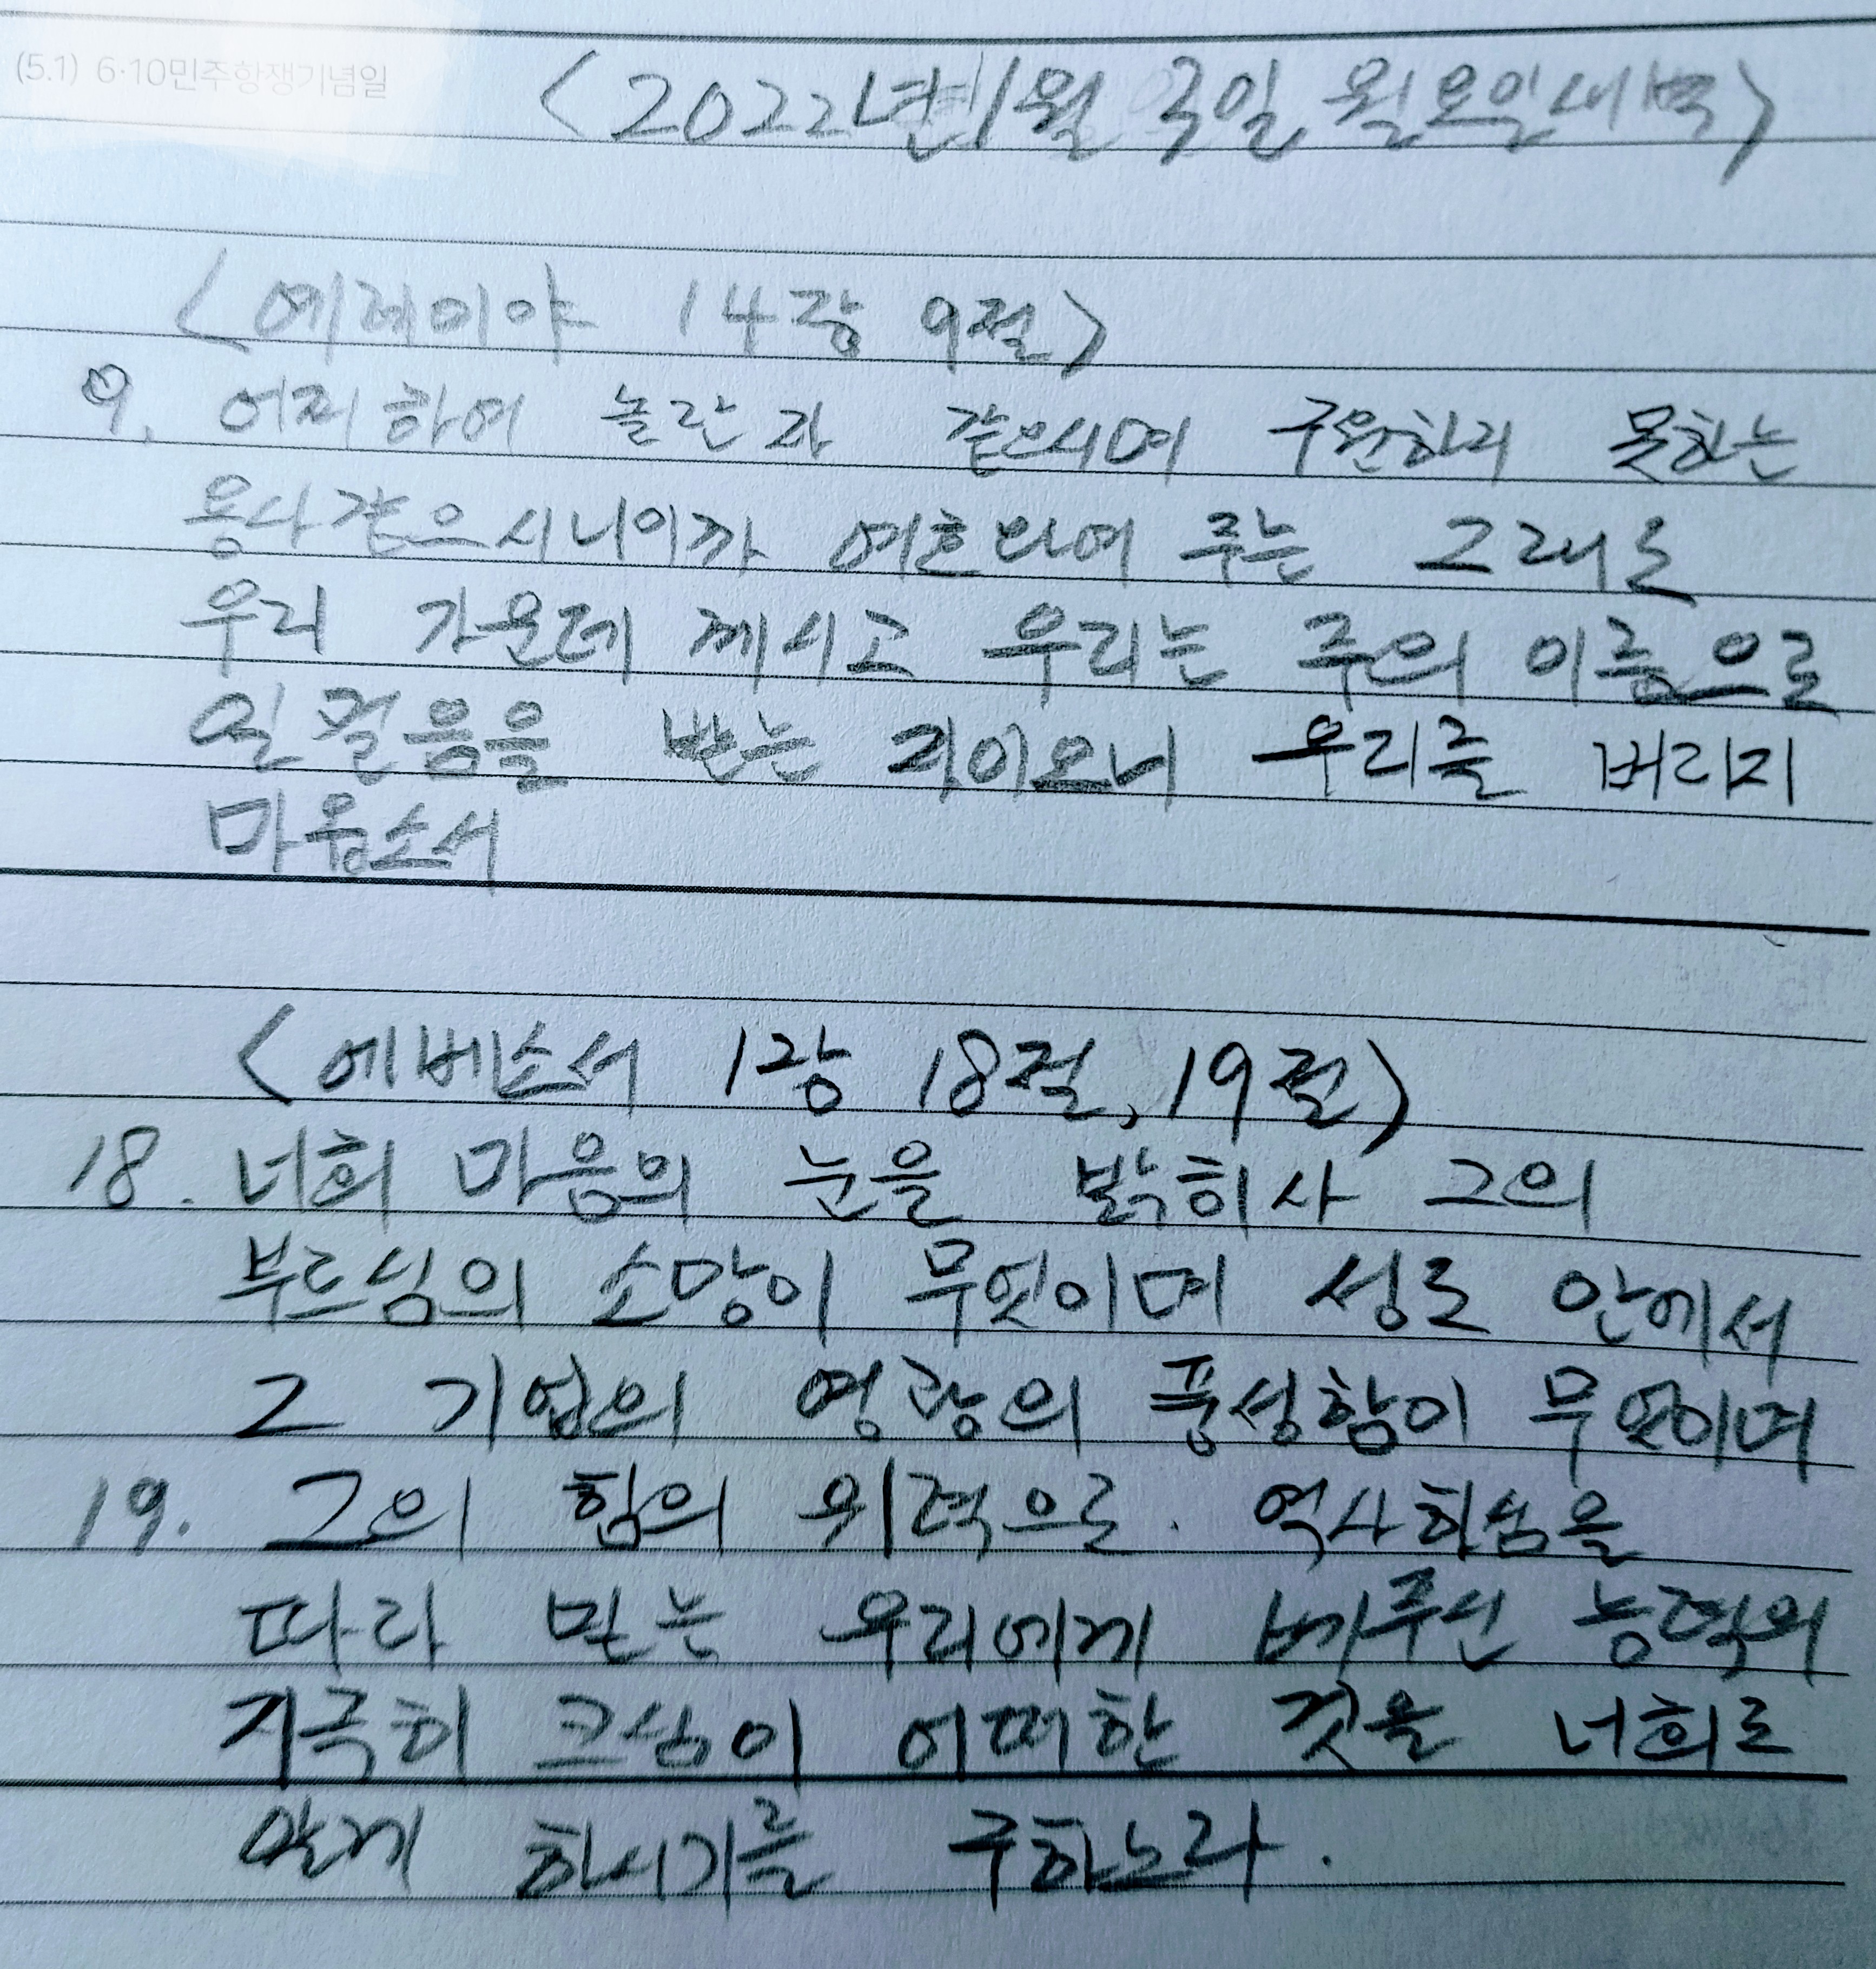 (5.1) 6·10민주항쟁기념일
<2022년 1월 3일 월요일새벽>
<예레미야 14장 9절>
9. 어찌하여 놀란자 같으시며 구원하지 못하는
용사같으시니이까 여호와여 주는 그래도
우리 가운데 계시고 우리는 주의 이름으로
일컬음을 받는 자이오니 우리를 버리지
마옵소서
<에베소서 1장 18절, 19절>
18. 너희 마음의 눈을 밝히사 그의
부르심의 소망이 무엇이며 성도 안에서
그 기업의 영광의 풍성함이 무엇이며
19. 그의 힘의 위력으로 역사하심을
따라 믿는 우리에게 베푸신 능력의
지극히 크심이 어떠한 것을 너희로
알게 하시기를 구하노라.